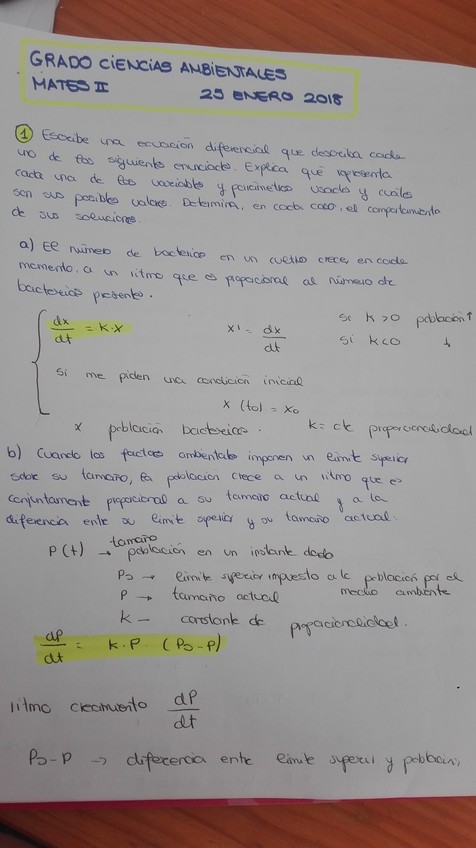 GRADO CIENCIAS AMBIENTALES
MATES II 25 ENERO 2018
1 Escribe una ecuación diferencial que describa cada
uno de los siguientes enunciados. Explica qué representa
cada una de las variables y parámetros usados y cuáles
son sus posibles valores. Determina, en cada caso, el comportamiento
de sus soluciones.
a) El número de bacterias en un cultivo crece, en cada
momento, a un ritmo que es proporcional al número de
bacterias presente.
dx/dt = k·x x' = dx/dt si k>0 población ↑
si k<0 ↓
si me piden una condición inicial
x (t0) = x0
x población bacteriana. k = ck proporcionalidad
b) Cuando los factores ambientales imponen un límite superior
sobre su tamaño, la población crece a un ritmo que es
conjuntamente proporcional a su tamaño actual y a la
diferencia entre su límite superior y su tamaño actual.
P(t) → tamaño población en un instante dado
P0 → límite superior impuesto a la población por el
medio ambiente
P → tamaño actual
k – constante de proporcionalidad.
dP/dt = k·P·(P0-P)
ritmo crecimiento dP/dt
P0-P → diferencia entre límite superior y población,